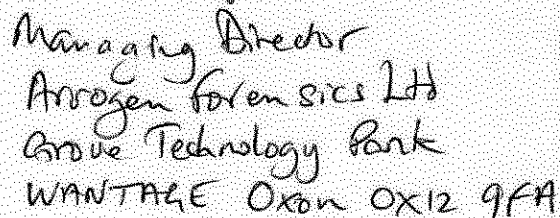 Managing Director
Arrogen Forensics Ltd
Grove Technology Park
WANTAGE Oxon OX12 9FA